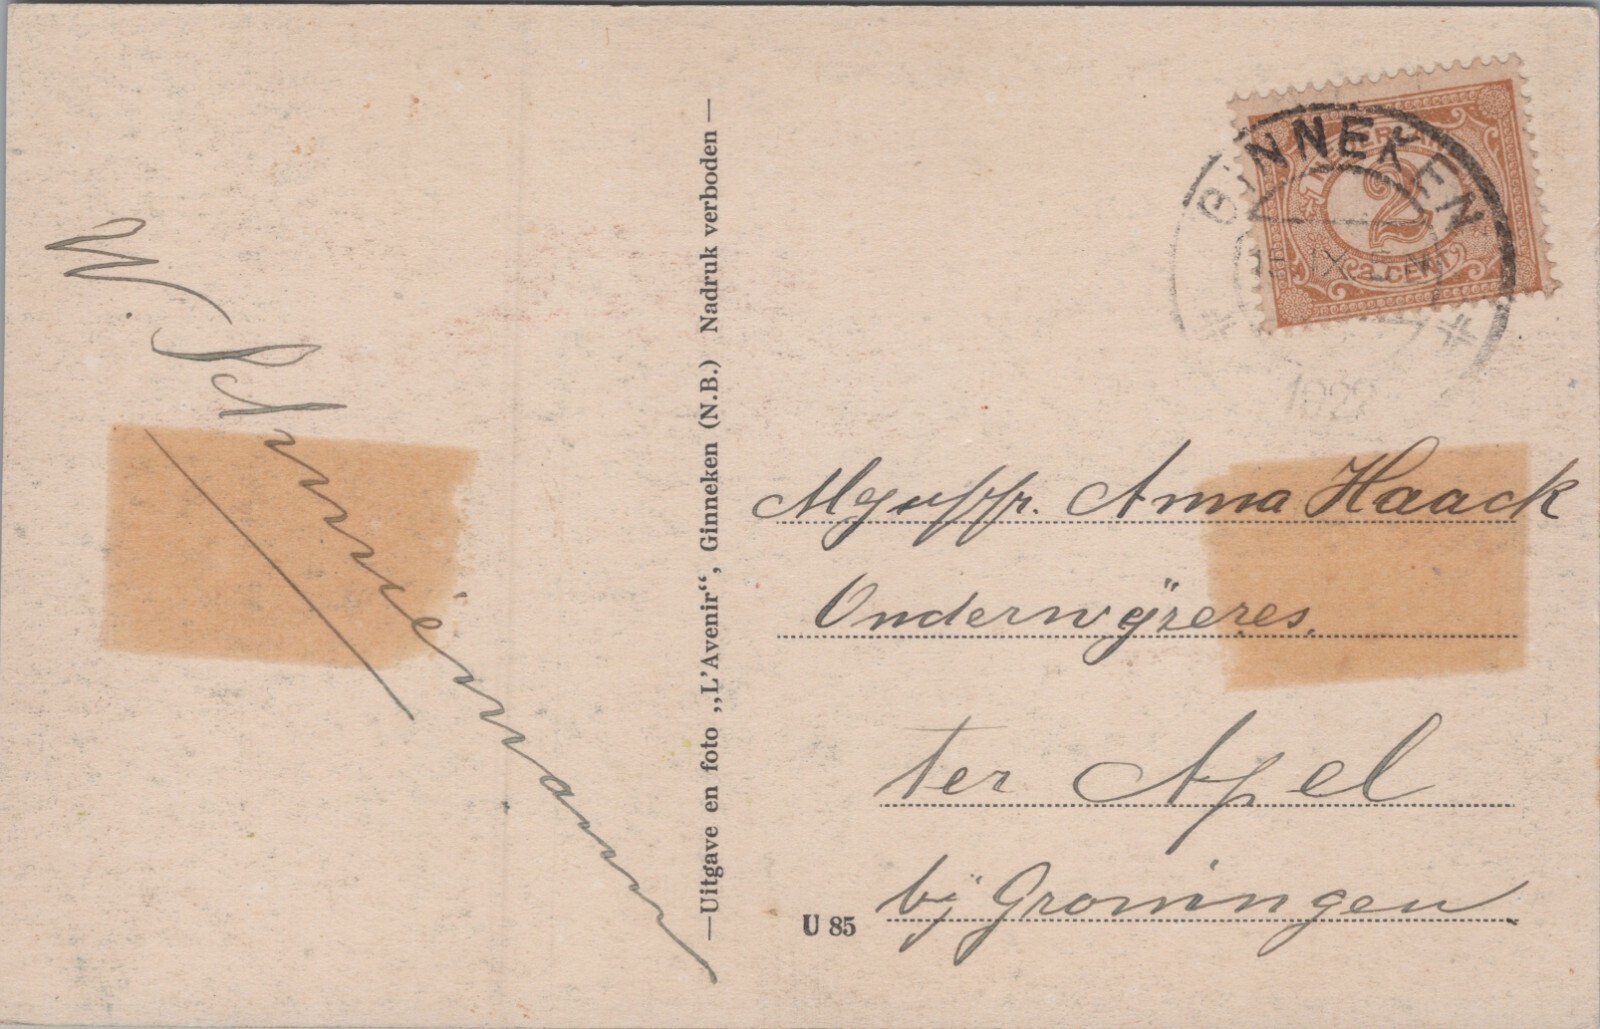 GINNEKEN
IX
2
2 CENT
1922
Mejuffr. Anna Haack
Onderwijzeres,
ter Apel
bij Groningen
U 85
—Uitgave en foto ,,L'Avenir“, Ginneken (N.B.) Nadruk verboden—
W.